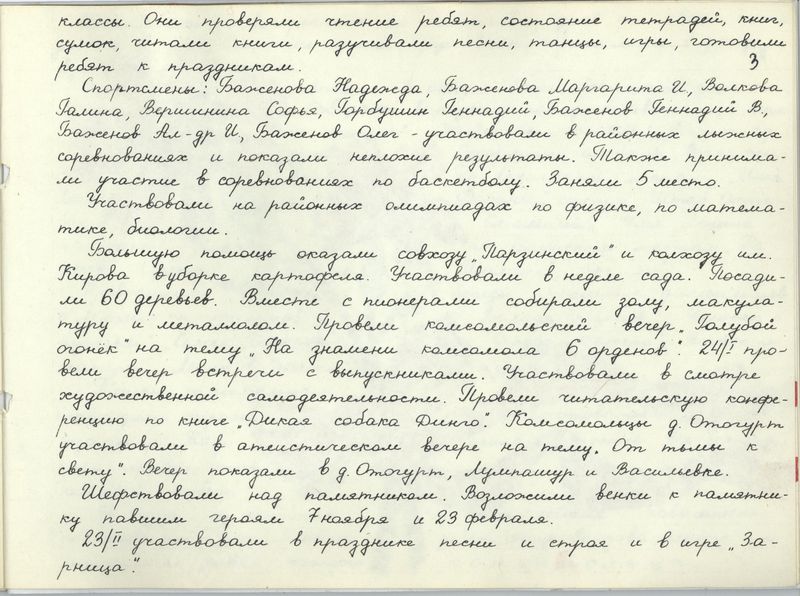 классы. Они проверяли чтение ребят, состояние тетрадей, книг,
сумок, читали книги, разучивали песни, танцы, игры, готовили
ребят к праздникам.
3
Спортсмены: Баженова Надежда, Баженова Маргарита И., Волкова
Галина, Вершинина Софья, Горбушин Геннадий, Баженов Геннадий В.,
Баженов Ал-др И., Баженов Олег - участвовали в районных лыжных
соревнованиях и показали неплохие результаты. Также принима-
ли участие в соревнованиях по баскетболу. Заняли 5 место.
Участвовали на районных олимпиадах по физике, по матема-
тике, биологии.
Большую помощь оказали совхозу „Парзинский" и колхозу им.
Кирова в уборке картофеля. Участвовали в неделе сада. Посади-
ли 60 деревьев. Вместе с пионерами собирали золу, макула-
туру и металлолом. Провели комсомольский вечер „Голубой
огонёк" на тему „На знамени комсомола 6 орденов". 24/I про-
вели вечер встречи с выпускниками. Участвовали в смотре
художественной самодеятельности. Провели читательскую конфе-
ренцию по книге „Дикая собака Динго". Комсомольцы д. Отогурт
участвовали в атеистическом вечере на тему „От тьмы к
свету". Вечер показали в д. Отогурт, Лумпашур и Васильевке.
Шефствовали над памятником. Возложили венки к памятни-
ку павшим героям 7 ноября и 23 февраля.
23/II участвовали в празднике песни и строя и в игре „За-
рница".